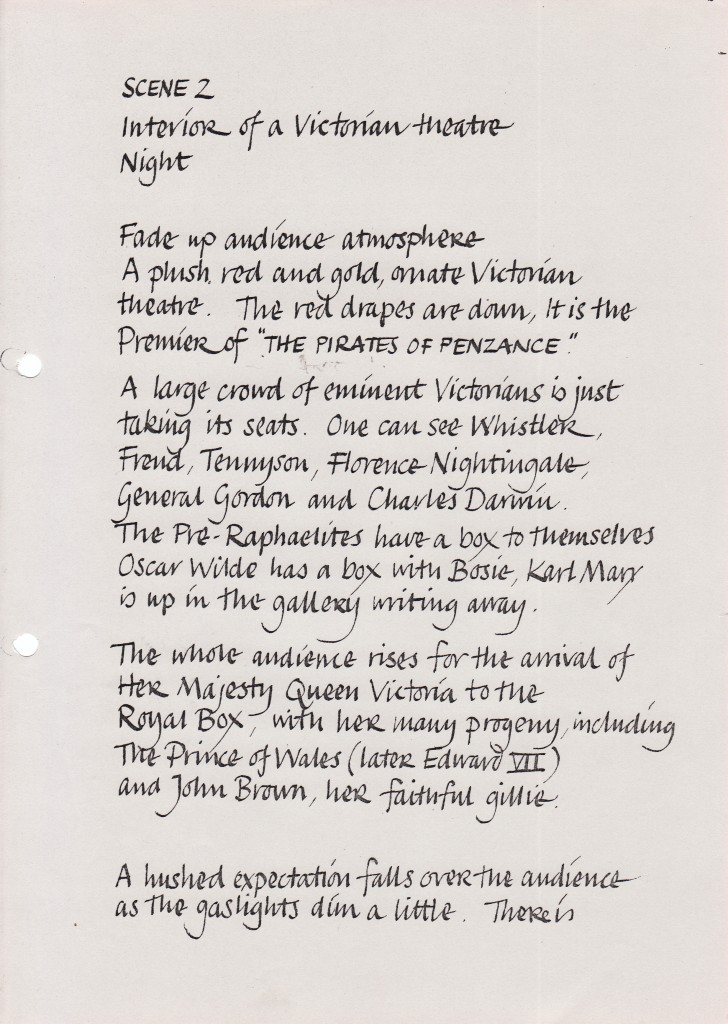 SCENE 2
Interior of a Victorian theatre
Night
Fade up audience atmosphere
A plush red and gold, ornate Victorian
theatre. The red drapes are down, It is the
Premier of "THE PIRATES OF PENZANCE."
A large crowd of eminent Victorians is just
taking its seats. One can see Whistler,
Freud, Tennyson, Florence Nightingale,
General Gordon and Charles Darwin.
The Pre-Raphaelites have a box to themselves
Oscar Wilde has a box with Bosie, Karl Marx
is up in the gallery writing away.
The whole audience rises for the arrival of
Her Majesty Queen Victoria to the
Royal Box, with her many progeny, including
The Prince of Wales (later Edward VII)
and John Brown, her faithful gillie.
A hushed expectation falls over the audience
as the gaslights dim a little. There is